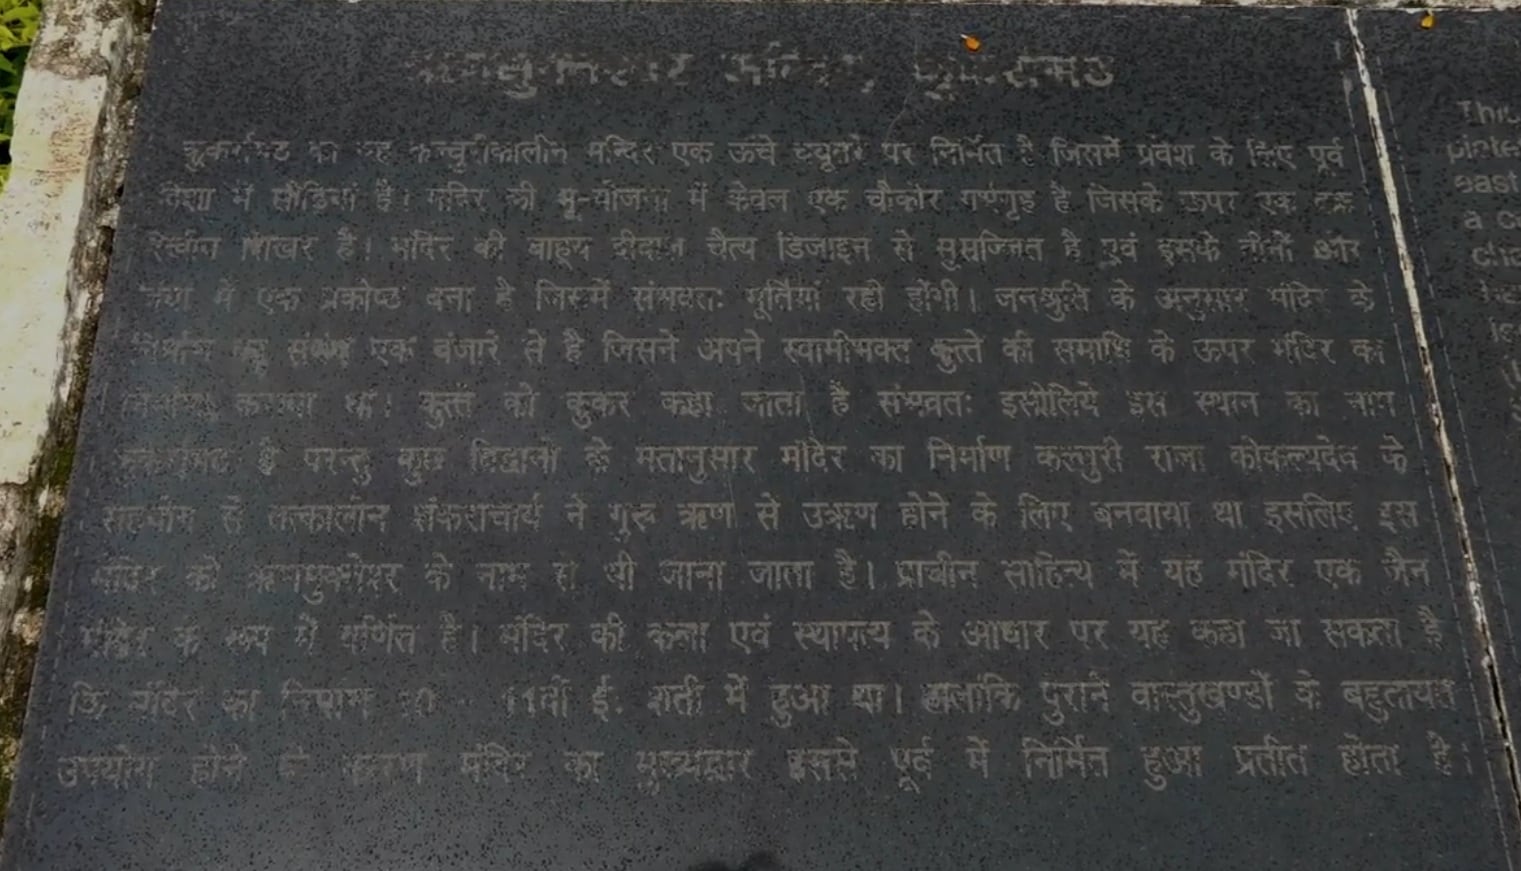 ऋणमुक्तेश्वर मन्दिर, कुकर्रामठ
कुकर्रामठ का यह कल्चुरीकालीन मन्दिर एक ऊंचे चबूतरे पर निर्मित है जिसमें प्रवेश के लिए पूर्व
दिशा में सीढियां है। मंदिर की भू-योजना में केवल एक चौकोर गर्भगृह है जिसके ऊपर एक वक्र
रेखीय शिखर है। मंदिर की बाह्य दीवाल चैत्य डिजाइन से सुसज्जित है एवं इसके तीनों ओर
में एक प्रकोष्ठ बना है जिसमें संभवतः मूर्तियां रही होंगी। जनश्रुति के अनुसार मंदिर के
निर्माण का संबंध एक बंजारे से है जिसने अपने स्वामीभक्त कुत्ते की समाधि के ऊपर मंदिर का
निर्माण कराया था। कुत्ते को कुकर कहा जाता है संभवतः इसीलिये इस स्थान का नाम
कुकर्रामठ है परन्तु कुछ विद्वानों के मतानुसार मंदिर का निर्माण कल्चुरी राजा कोकल्यदेव के
सहयोग से तत्कालीन शंकराचार्य ने गुरु ऋण से उऋण होने के लिए बनवाया था इसलिए इस
मंदिर को ऋणमुक्तेश्वर के नाम से भी जाना जाता है। प्राचीन साहित्य में यह मंदिर एक जैन
मंदिर के रूप में वर्णित है। मंदिर की कला एवं स्थापत्य के आधार पर यह कहा जा सकता है
कि मंदिर का निर्माण 10 - 11वीं ई. शती में हुआ था। हालांकि पुराने वास्तुखण्डों के बहुतायत
उपयोग होने के कारण मंदिर का मुख्यद्वार इससे पूर्व में निर्मित हुआ प्रतीत होता है।
east
a c